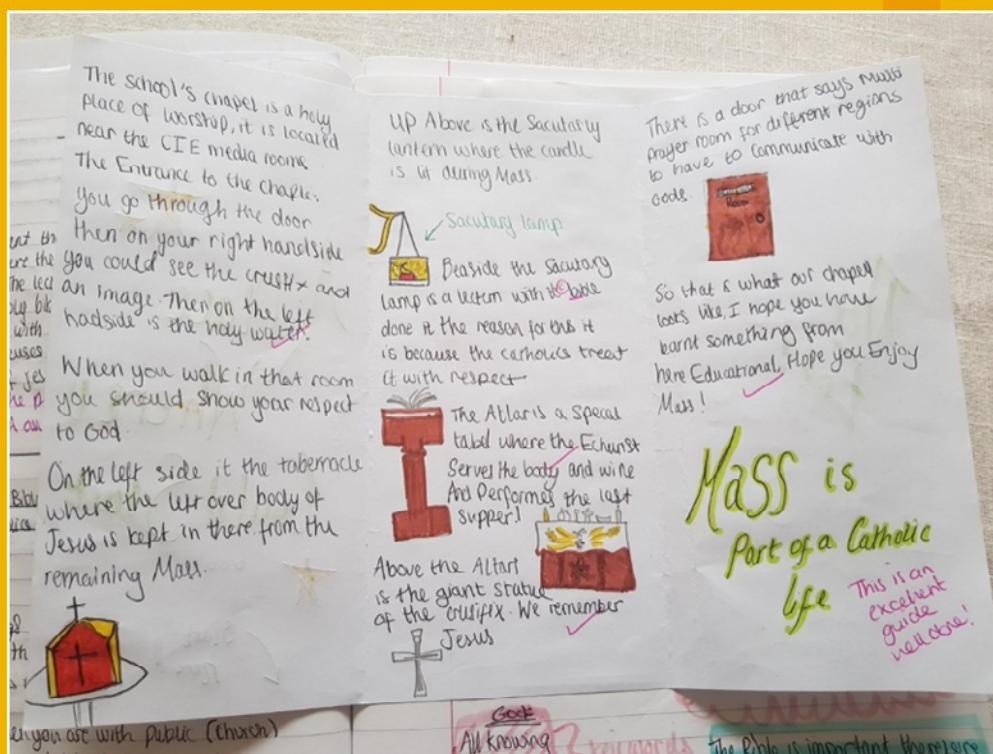 The school's chapel is a holy
place of worship, it is located
near the CIE media rooms
The Entrance to the chaple:
you go through the door
then on your right handside
you could see the crusifix and
an image. Then on the left
hadside is the holy water.
When you walk in that room
you should show your respect
to God.
On the left side it the tabernacle
where the left over body of
Jesus is kept in there from the
remaining Mass.
UP Above is the Sacutary
lantern where the candle
is lit during Mass.
Sacutary lamp
Beaside the Sacutary
lamp is a lectern with the bible
done it the reason for this it
is because the catholics treat
it with respect
The Altar is a Specal
tabel where the Echurist
Serves the body and wine
And Performes the last
supper!
Above the Altart
is the giant statue
of the crusifix. We remember
Jesus
There is a door that says Multi
prayer room for different regions
to have to Communicate with
Gods.
Room
So that is what our chapel
looks like, I hope you have
learnt something from
here Educational, Hope you Enjoy
Mass!
Mass is
Part of a Catholic
life
This is an
excellent
guide
well done!
you are with public (church)
God
All knowing
Keywords
The Bible is important